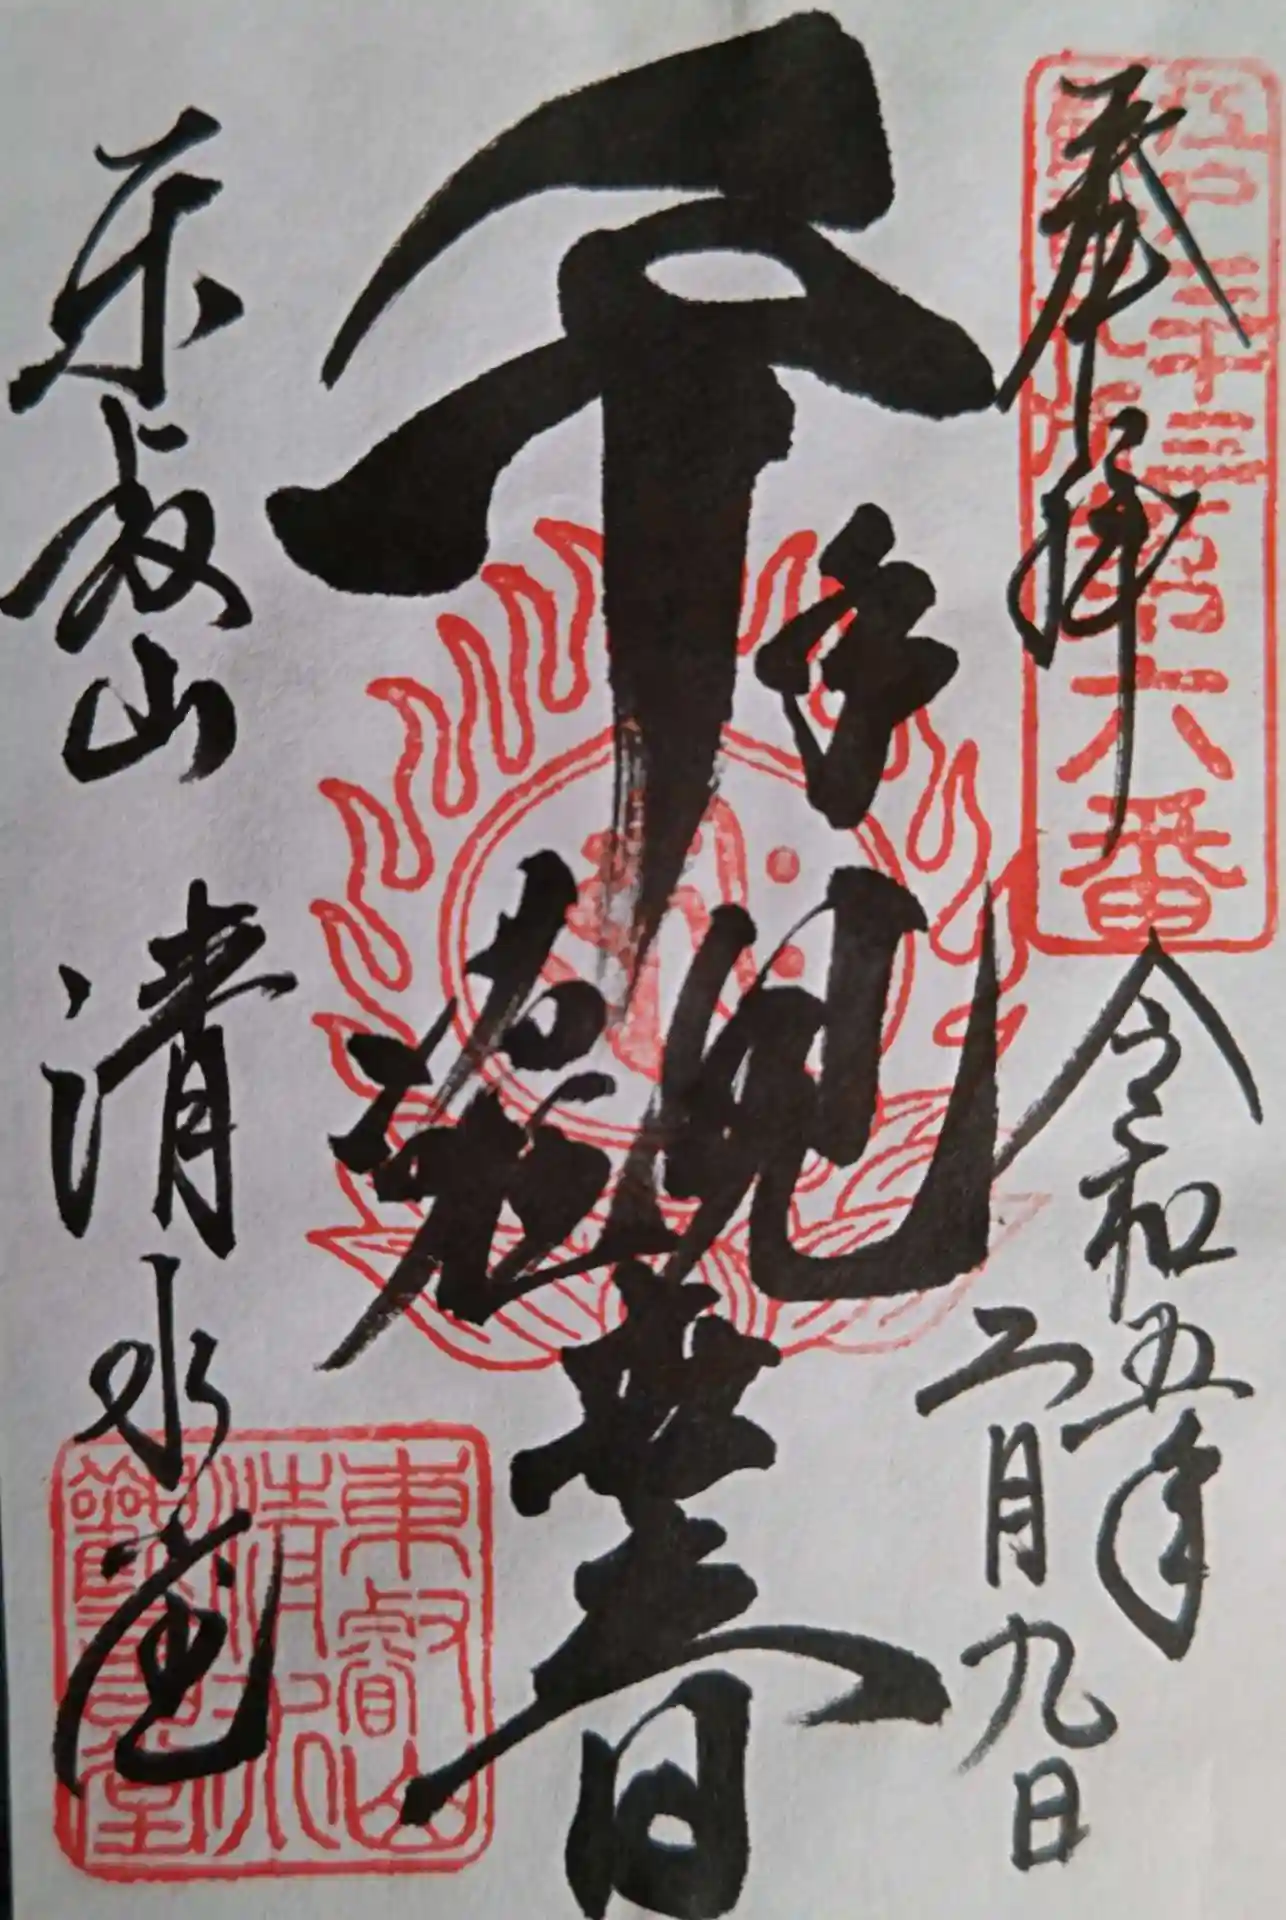 奉拝
江戸三十三
観音札所第六番
令和五年
二月九日
千手観世音
东叡山 清水堂
東叡山
清水
観音堂